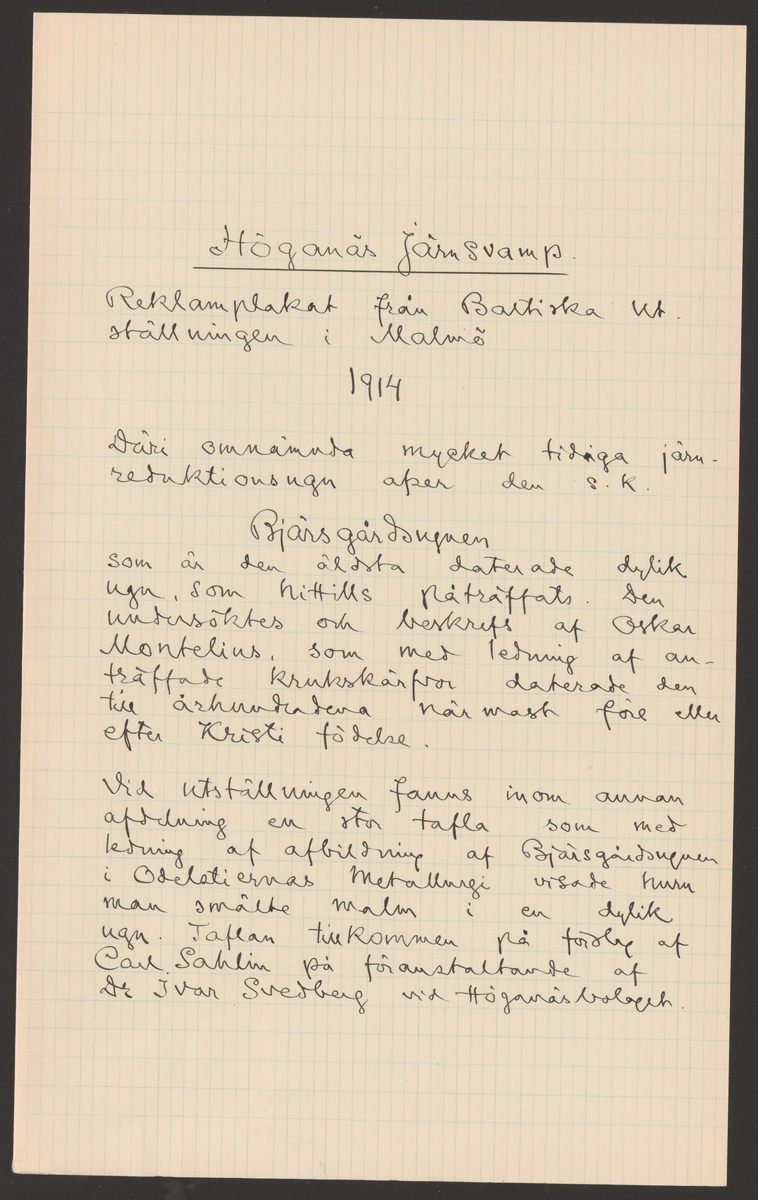 Höganäs Järnsvamp.
Reklamplakat från Baltiska Ut-
ställningen i Malmö
1914
Däri omnämnda mycket tidiga järn-
reduktionsugn afser den s.k.
Bjärsgårdsugnen
som är den äldsta daterade dylik
ugn, som hittills påträffats. Den
undersöktes och beskrefs af Oskar
Montelius, som med ledning af an-
träffade krukskärfvor daterade den
till århundradena närmast före eller
efter Kristi födelse.
Vid utställningen fanns inom annan
afdelning en stor tafla som med
ledning af afbildning af Bjärsgårdsugnen
i Odelstiernas Metallurgi visade huru
man smälte malm i en dylik
ugn. Taflan tillkommen på förslag af
Carl Sahlin på föranstaltande af
Dr Ivar Svedberg vid Höganäsbolaget.